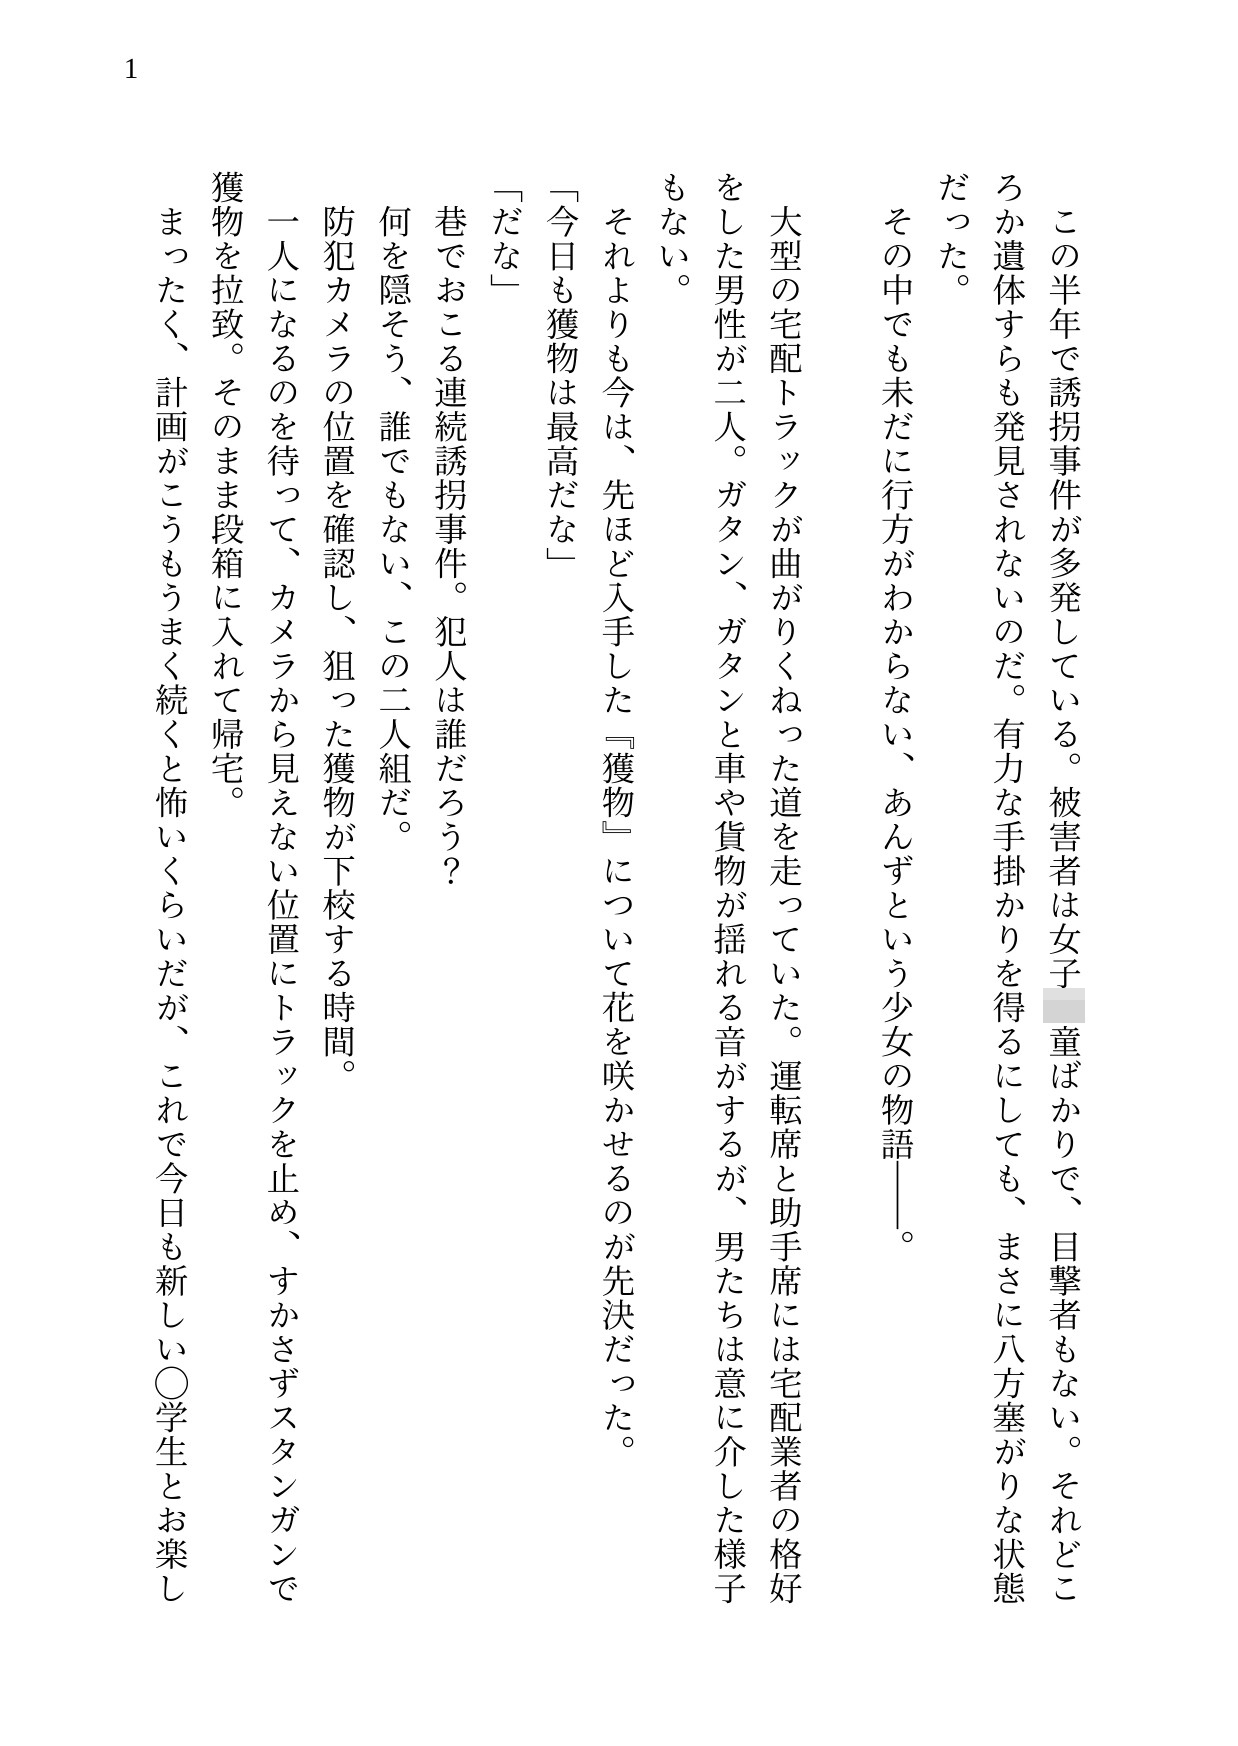 1
この半年で誘拐事件が多発している。被害者は女子童ばかりで、目撃者もない。それどこ
ろか遺体すらも発見されないのだ。有力な手掛かりを得るにしても、まさに八方塞がりな状態
だった。
その中でも未だに行方がわからない、あんずという少女の物語――。
大型の宅配トラックが曲がりくねった道を走っていた。運転席と助手席には宅配業者の格好
をした男性が二人。ガタン、ガタンと車や貨物が揺れる音がするが、男たちは意に介した様子
もない。
それよりも今は、先ほど入手した『獲物』について花を咲かせるのが先決だった。
「今日も獲物は最高だな」
「だな」
巷でおこる連続誘拐事件。犯人は誰だろう？
何を隠そう、誰でもない、この二人組だ。
防犯カメラの位置を確認し、狙った獲物が下校する時間。
一人になるのを待って、カメラから見えない位置にトラックを止め、すかさずスタンガンで
獲物を拉致。そのまま段箱に入れて帰宅。
まったく、計画がこうもうまく続くと怖いくらいだが、これで今日も新しい◯学生とお楽し